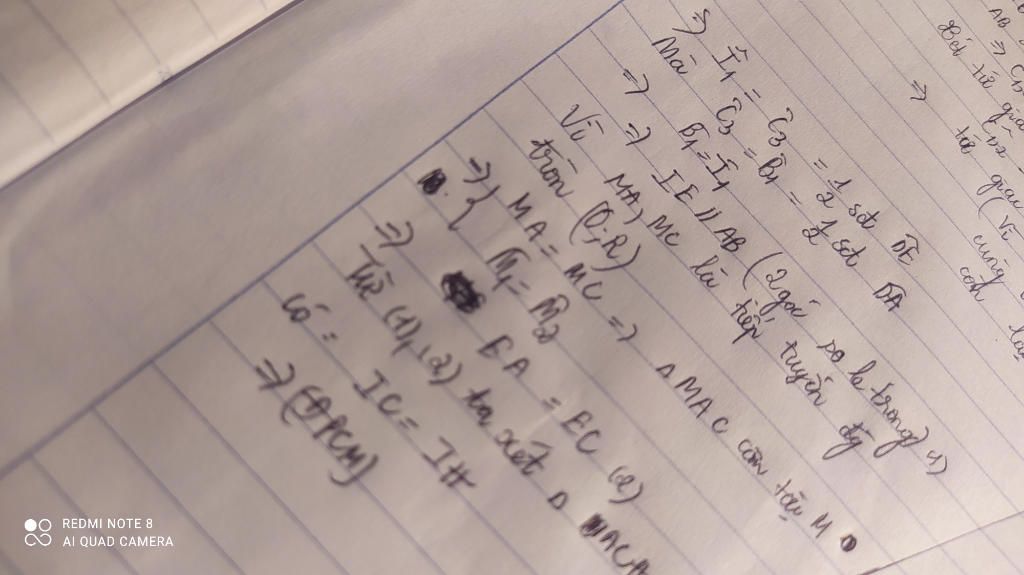 AB ⇒ Ĉ3
Xét tứ giác
Ĉ2
⇒ tứ giác
(Vì
cùng
⇒ Î1 = Ĉ3 = 1/2 sđ DE
Mà Ĉ3 = B̂1 = 1/2 sđ DA
⇒ B̂1 = Î1
⇒ IE // AB (2 góc so le trong) (1)
Vì MA, MC là tiếp tuyến
tròn (O;R)
⇒ { MA = MC ⇒ Δ MAC cân tại M
M̂1 = M̂2
⇒ EA = EC (2)
Từ (1), (2) ta xét Δ
có : IC = IH
⇒ (ĐPCM)
REDMI NOTE 8
AI QUAD CAMERA